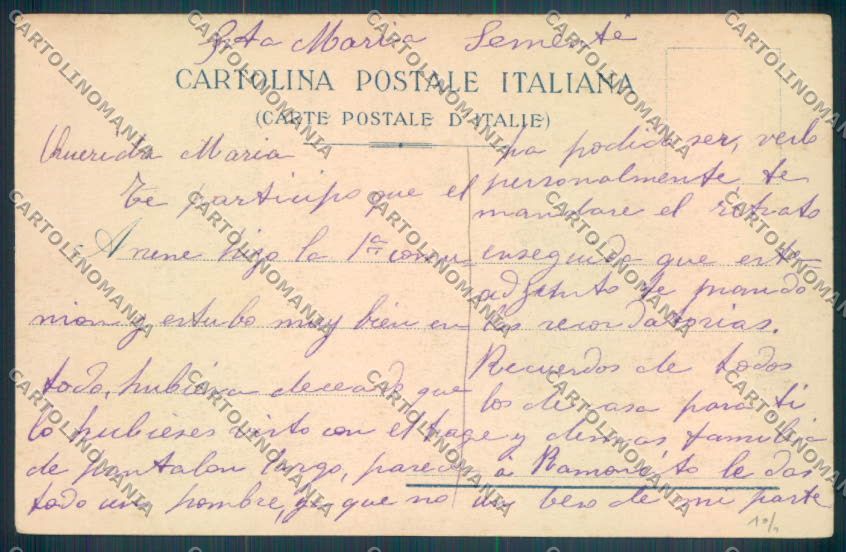 Srta Maria Sementé
CARTOLINA POSTALE ITALIANA
(CARTE POSTALE D'ITALIE)
Querida Maria
Te participo que el
nene hizo la 1ª comu-
nion y estubo muy bien en
todo, hubiera deceado que
lo hubieses visto con el trage
de pantalon largo, parece
todo un hombre, ya que no
ha podido ser, verlo
personalmente te
mandare el retrato
enseguida que este
adjunto te mando
los recordatorios.
Recuerdos de todos
los de casa para ti
y demas familia
a Ramoncito le das
un beso de mi parte
CARTOLINOMANIA